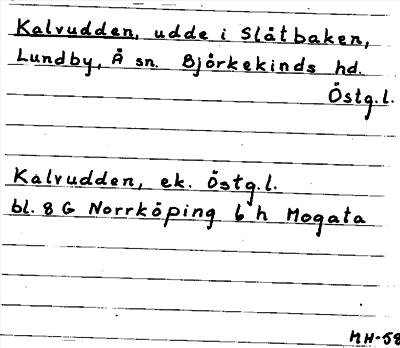 Kalvudden, udde i Slätbaken,
Lundby, Å sn. Björkekinds hd.
Östg.l.
Kalvudden, ek. Östg.l.
bl. 8 G Norrköping 6 h Mogata
MH-58